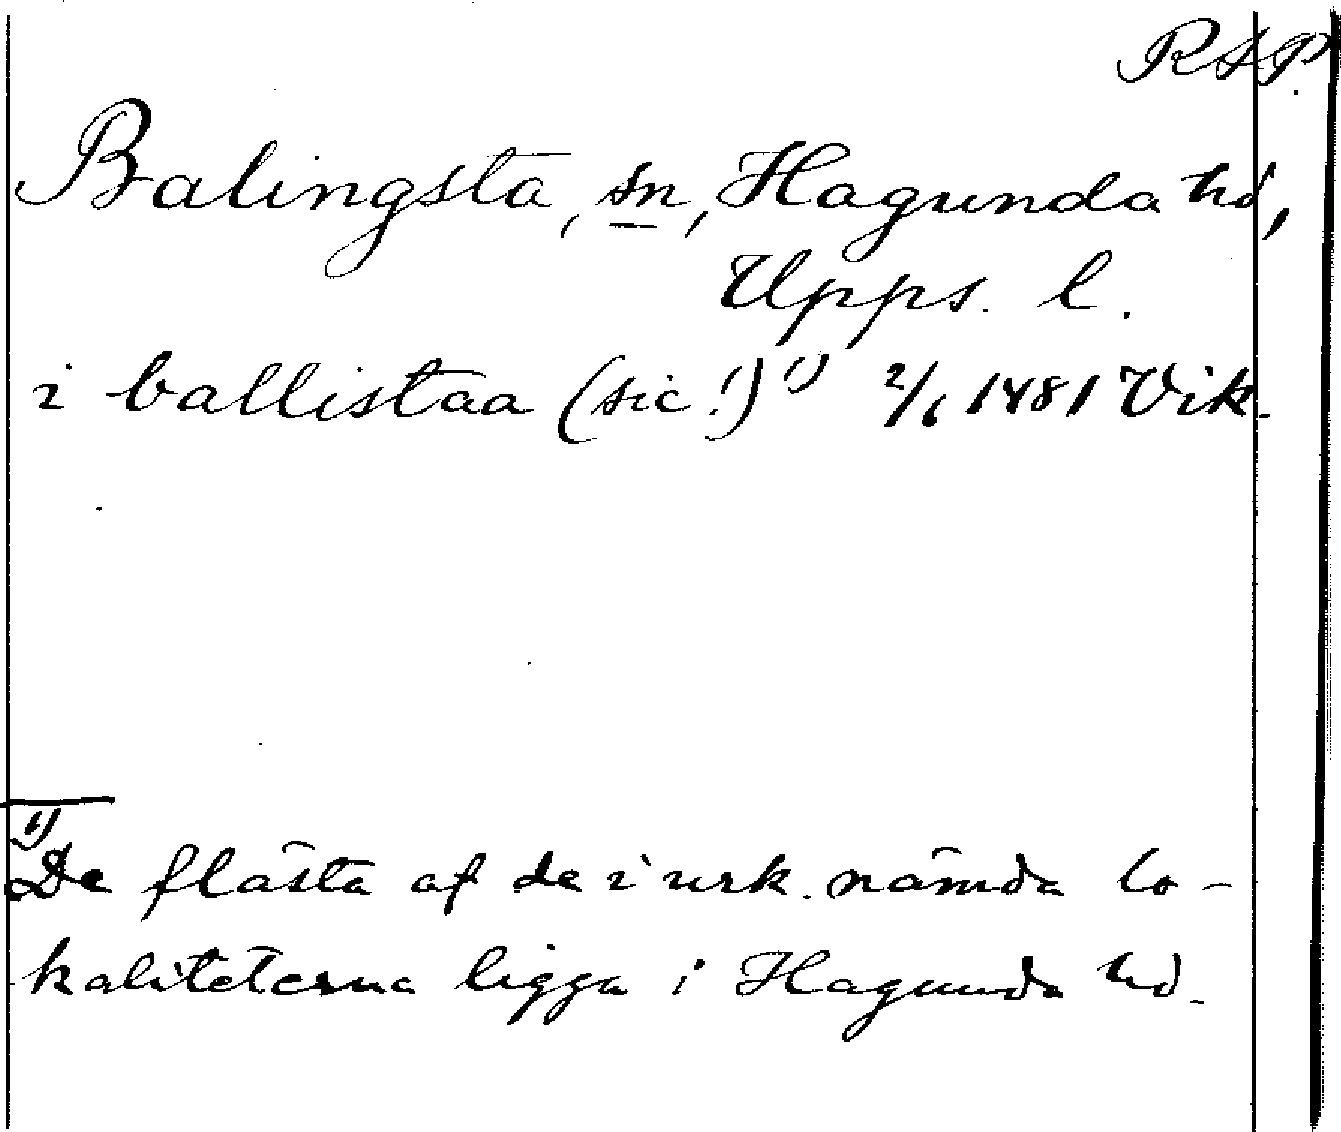 RAP.
Balingsta, sn, Hagunda hd,
Upps. l.
i ballistaa (sic!) 1) 2/6 1481 Vik.
1) De flästa af de i urk. nämda lo-
kaliteterna ligga i Hagunda hd.